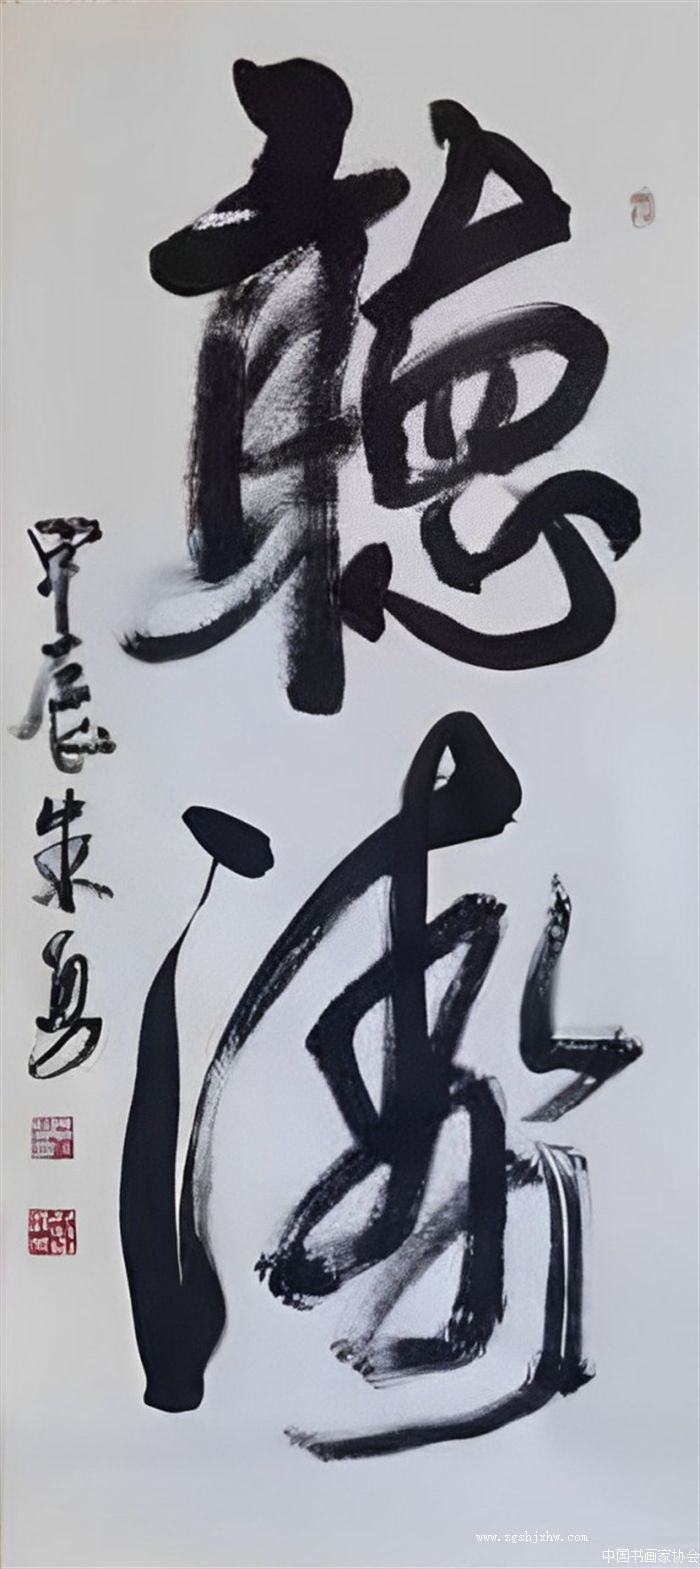 聽濤
甲辰朱勇
www.zgshjxhw.com
中国书画家协会